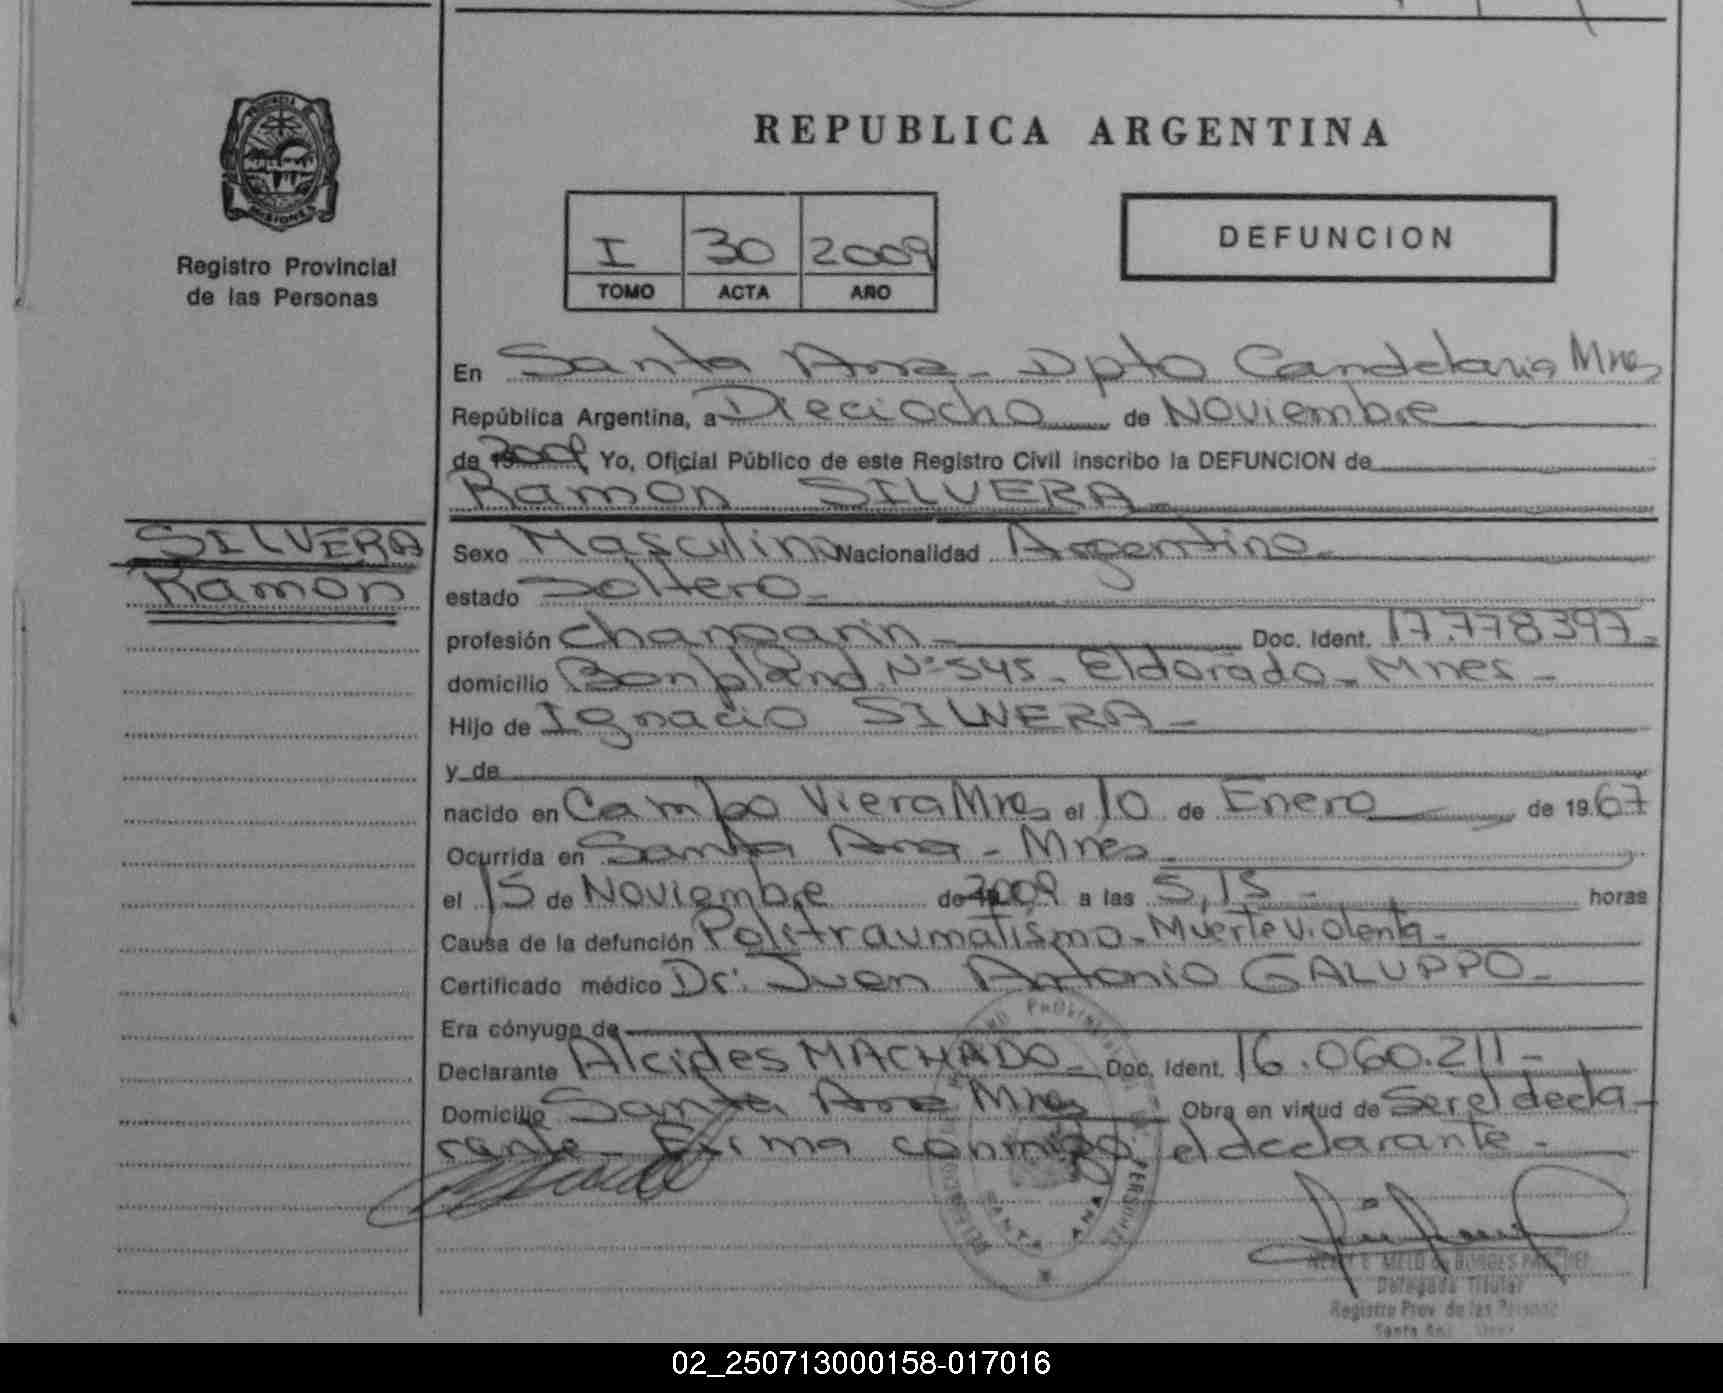 PROVINCIA DE
MISIONES
Registro Provincial
de las Personas
REPUBLICA ARGENTINA
I 30 2009
TOMO ACTA AÑO
DEFUNCION
En Santa Ana - Dpto Candelaria Mnes
República Argentina, a Dieciocho de Noviembre
de 2009 Yo, Oficial Público de este Registro Civil inscribo la DEFUNCION de
Ramon SILVERA -
SILVERA
Ramon
Sexo Masculino Nacionalidad Argentino -
estado Soltero -
profesión changarin - Doc. Ident. 17.778397 -
domicilio Bonpland Nº 545 - Eldorado - Mnes -
Hijo de Ignacio SILVERA -
y de
nacido en Campo Viera Mnes el 10 de Enero de 1967
Ocurrida en Santa Ana - Mnes -
el 15 de Noviembre de 2009 a las 5,15 - horas
Causa de la defunción Politraumatismo - Muerte Violenta -
Certificado médico Dr: Juan Antonio GALUPPO -
Era cónyuge de
Declarante Alcides MACHADO - Doc. Ident. 16.060.211 -
Domicilio Santa Ana Mnes Obra en virtud de Ser el decla-
rante - Firma conmigo el declarante -
SANTA ANA
MELO de BORGES
Delegada Titular
Registro Prov. de las Personas
Santa Ana
02_250713000158-017016